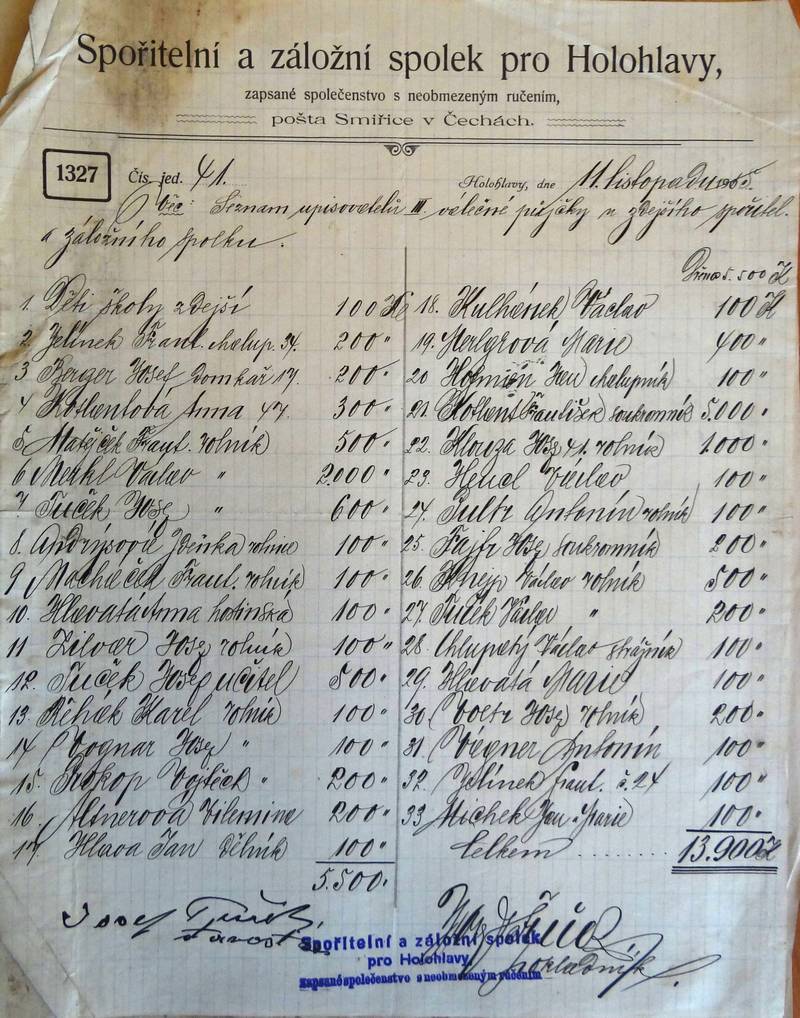 Spořitelní a záložní spolek pro Holohlavy,
zapsané společenstvo s neobmezeným ručením,
pošta Smiřice v Čechách.
1327
Čís. jed. 41.
Holohlavy, dne 11. listopadu 1915.
Věc: Seznam upisovatelů III. válečné půjčky u zdejšího spořitel.
a záložního spolku.
Přenos 5.500 K
1. Děti školy zdejší 100 K
2. Jelínek Frant. chalup. 34. 200 "
3 Berger Josef domkář 17. 200 "
4 Kotlentová Anna 47. 300 "
5. Matějček Frant. rolník 500 "
6 Merkl Václav " 2.000 "
7 Tuček Jos. " 600 "
8. Andrýsová Zdeňka rolnice 100 "
9 Macháček Frant. rolník 100 "
10. Hlavatá Anna hostinská 100 "
11 Zilvar Jos. rolník 100 "
12. Tuček Josef učitel 500 "
13. Řehák Karel rolník 100 "
14 Vognar Josef " 100 "
15. Prokop Vojtěch " 200 "
16. Altnerová Vilemína 200 "
17. Hlava Jan dělník 100 "
5.500.
18. Kulhánek Václav 100 K
19. Merlgrová Marie 400 "
20 Jan chalupník 100 "
21. František soukromník 5.000 "
22. Klouza Jos. 41. rolník 1.000 "
23. Hencl Václav 100 "
24. Antonín rolník 100 "
25. Fajfr Josef soukromník 200 "
26. Knejp Václav rolník 500 "
27. Tuček Václav " 200 "
28. Chlupatý Václav strážník 100 "
29. Hlavatá Marie 100 "
30. Jos. rolník 200 "
31. Vágner Antonín 100 "
32. Jelínek Frant. č. 24 100 "
33. Michek Jan a Marie 100 "
Celkem ........ 13.900 K
Josef Tuček,
starosta
pokladník.
Spořitelní a záložní spolek
pro Holohlavy
zapsané společenstvo s neobmezeným ručením